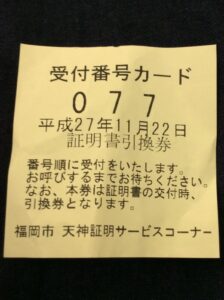 受付番号カード
077
平成27年11月22日
証明書引換券
番号順に受付をいたします。
お呼びするまでお待ちください。
なお、本券は証明書の交付時、
引換券となります。
福岡市 天神証明サービスコーナー